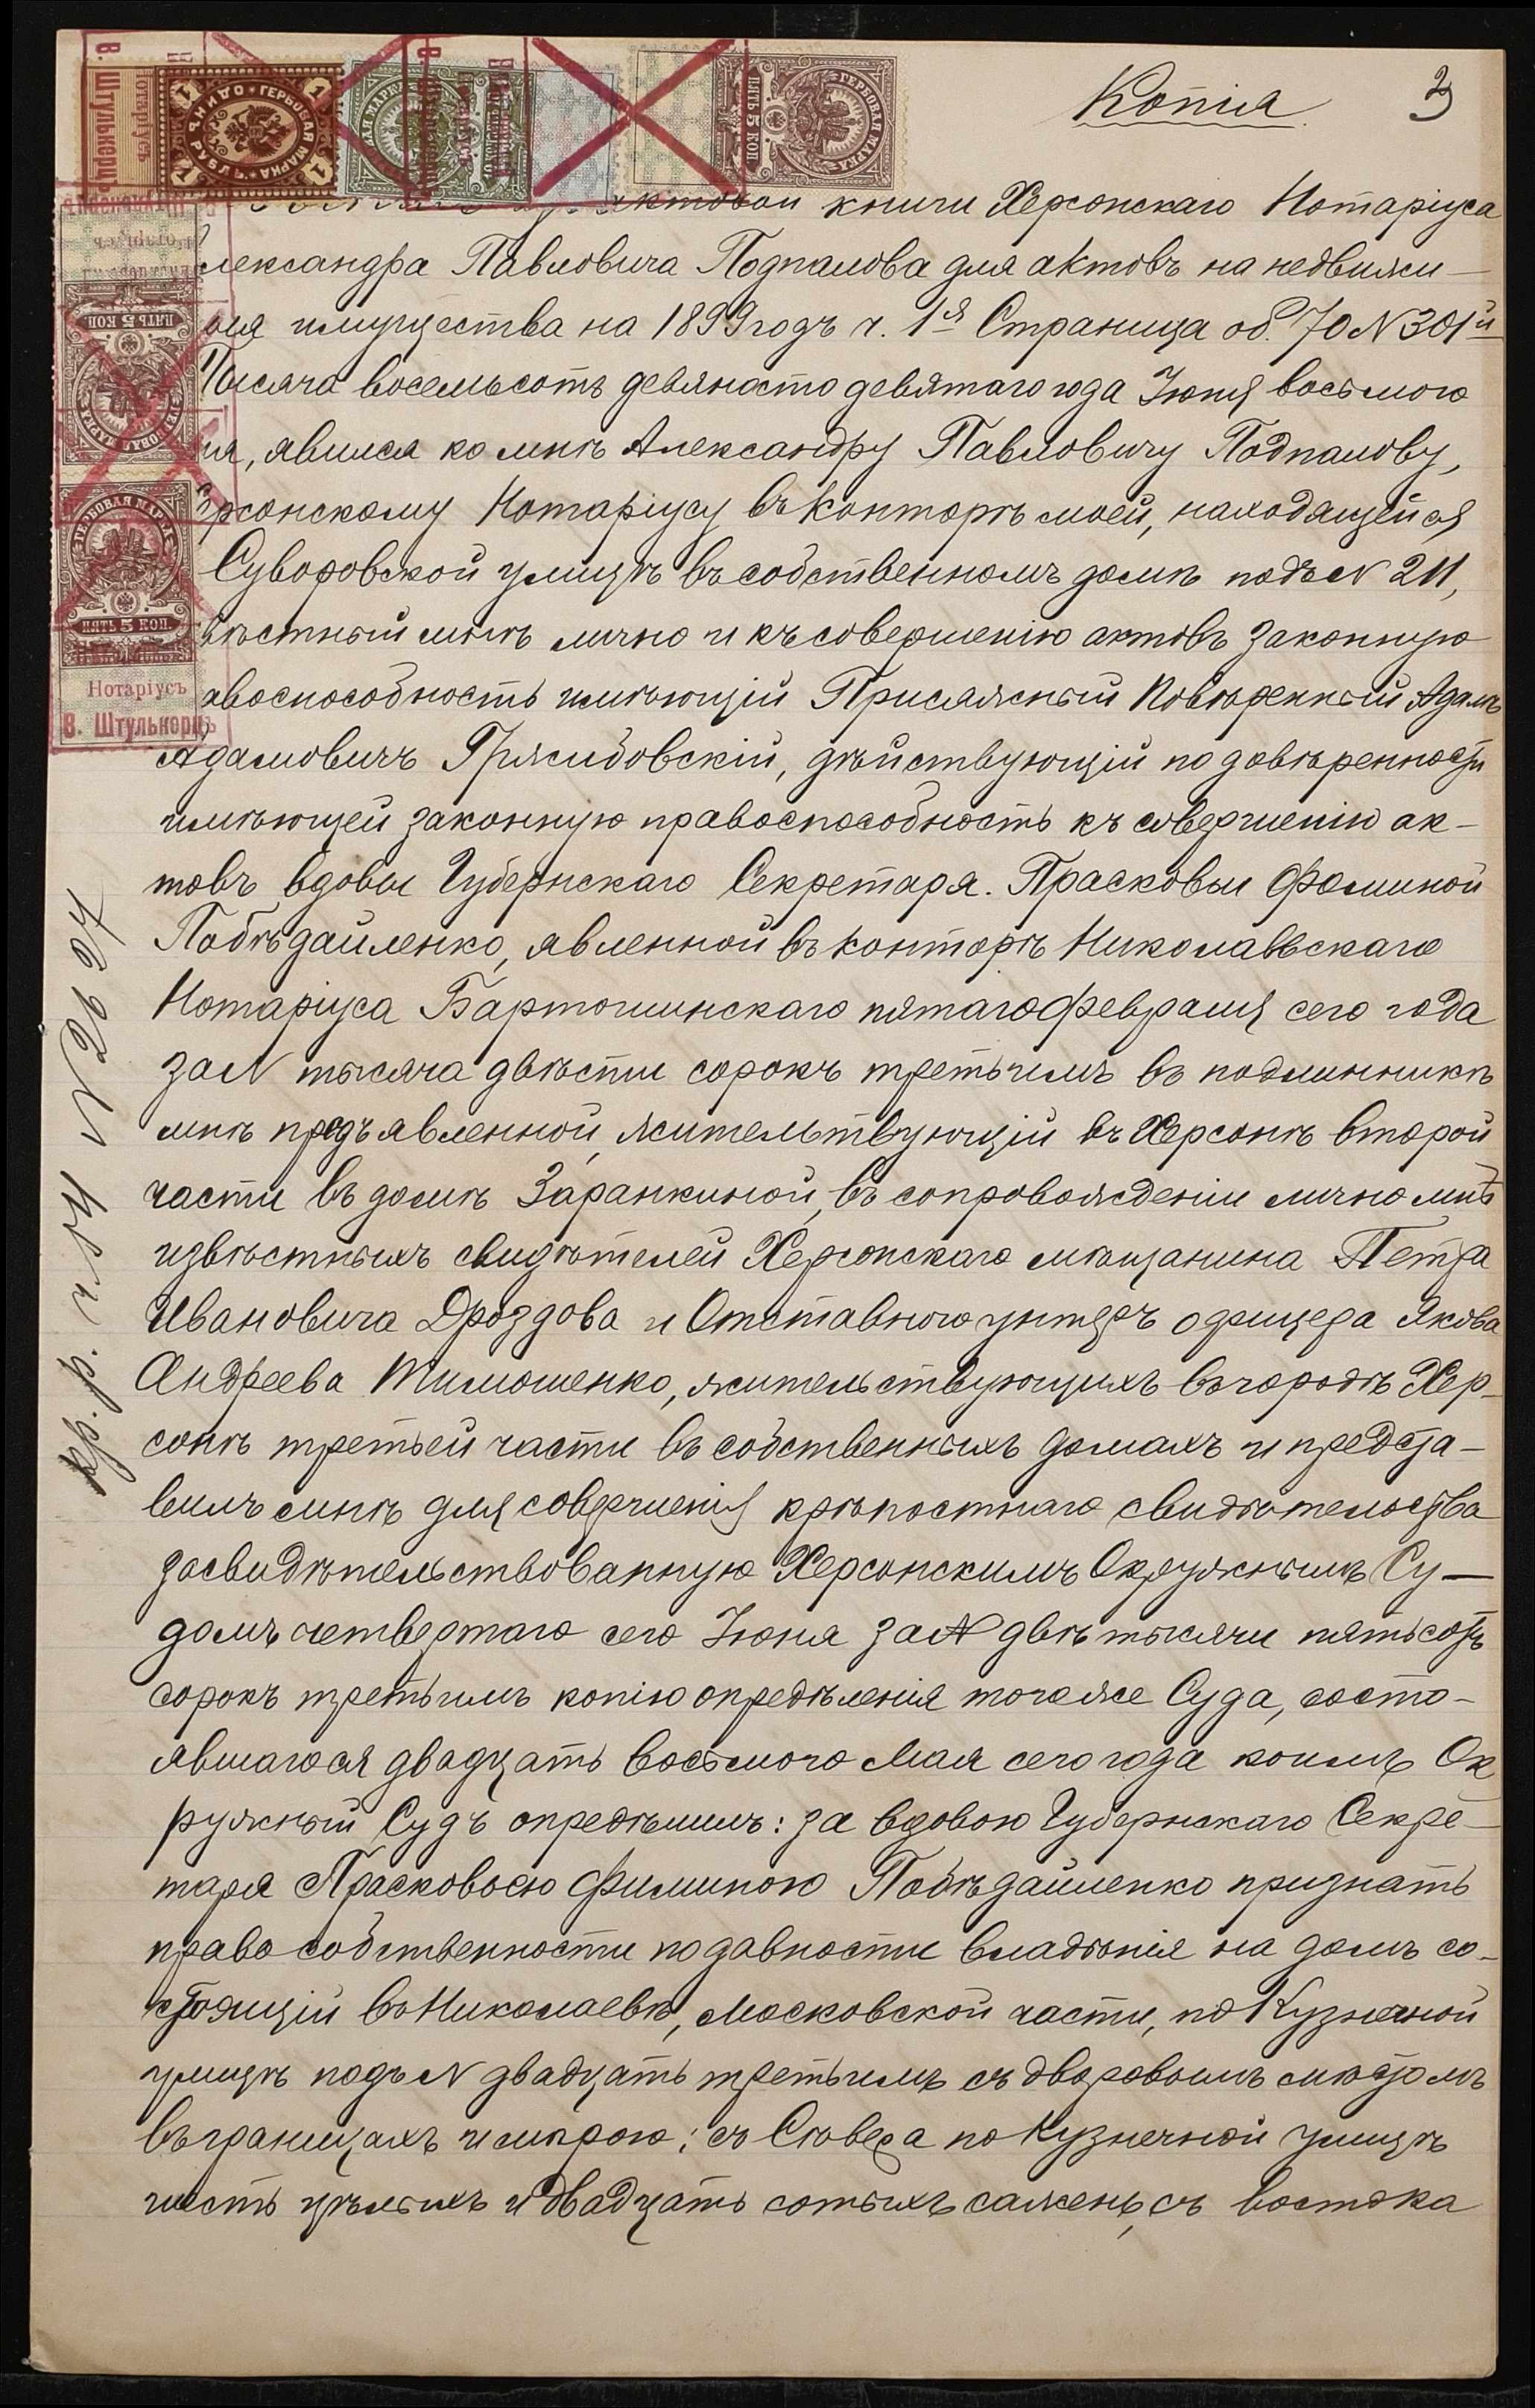 Копія
3
актовой книги Херсонскаго Нотаріуса
лександра Павловича Подпалова для актовъ на недвижи-
мыя имущества на 1899 годъ ч. 1я Страница об. 70 N 301й
Тысяча восемьсотъ девяносто девятаго года Іюня восьмого
ня, явился ко мнѣ Александру Павловичу Подпалову,
ерсонскому Нотаріусу въ конторѣ моей, находящейся
Суворовской улицѣ въ собственномъ домѣ подъ N 211,
вѣстный мнѣ лично и къ совершенію актовъ законную
авоспособность имѣющій Присяжный Повѣренный Адамъ
Адамовичъ Гржибовскій, дѣйствующій по довѣренности
имѣющей законную правоспособность къ совершенію ак-
товъ вдовы Губернскаго Секретаря. Прасковьи Фоминой
Побѣдайленко, явленной въ конторѣ Николаевскаго
Нотаріуса Бартошинскаго пятаго февраля сего года
за N тысяча двѣсти сорокъ третьимъ въ подлинникѣ
мнѣ предъявленной, жительствующій въ Херсонѣ второй
части въ домѣ Заранкиной, въ сопровожденіи лично мнѣ
извѣстныхъ свидѣтелей Херсонскаго мѣщанина Петра
Ивановича Дроздова и Отставного унтеръ офицера Якова
Андреева Тимошенко, жительствующихъ въ городѣ Хер-
сонѣ третьей части въ собственныхъ домахъ и предста-
вилъ мнѣ для совершенія крѣпостнаго свидѣтельства
засвидѣтельствованную Херсонскимъ Окружнымъ Су-
домъ четвертаго сего Іюня за N двѣ тысячи пятьсотъ
сорокъ третьимъ копію опредѣленія того же Суда, состо-
явшагося двадцать восьмого Мая сего года коимъ Ок
ружный Судъ опредѣлилъ: за вдовою Губернскаго Секре-
таря Прасковьею Фиминою Побѣдайленко признать
право собственности по давности владѣнія на домъ со-
стоящій въ Николаевѣ, Московской части, по Кузнечной
улицѣ подъ N двадцать третьимъ съ дворовымъ мѣстомъ
въ границахъ и мѣрою: съ Сѣвера по Кузнечной улицѣ
шесть цѣлыхъ и двадцать сотыхъ сажень, съ востока
кр. р. ч. 54 N 2627
В. Штулькерцъ
Нотаріусъ
ГЕРБОВАЯ МАРКА
ОДИНЪ РУБЛЬ
1
ГЕРБОВАЯ МАРКА
ПЯТЬ 5 КОП
ПЯТЬ 5 КОП
ГЕРБОВАЯ МАРКА
ГЕРБОВАЯ МАРКА
ПЯТЬ 5 КОП.
Нотаріусъ
В. Штулькерцъ